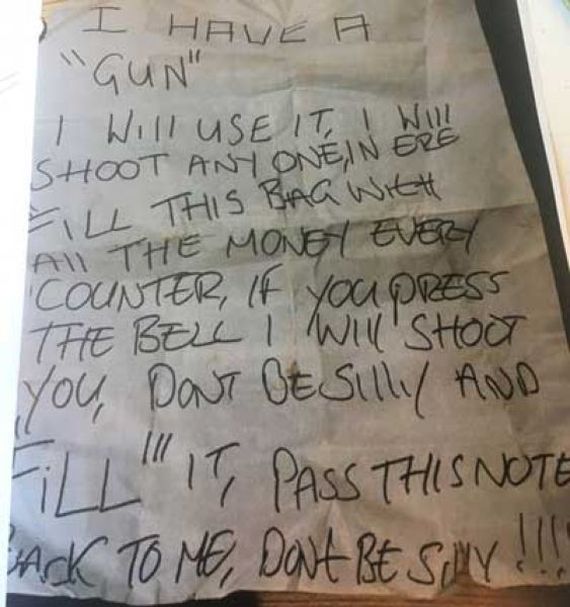 I HAVE A
"GUN"
I Will USE IT, I Will
SHOOT ANY ONE, IN ERE
FILL THIS BAG WitH
All THE MONEY EVERY
COUNTER, IF YOU PRESS
THE BELL I Will SHOOT
YOU, DONT BE SIlly AND
"FiLL" IT, PASS THIS NOTE
BACK TO ME, DONt BE SillY !!!